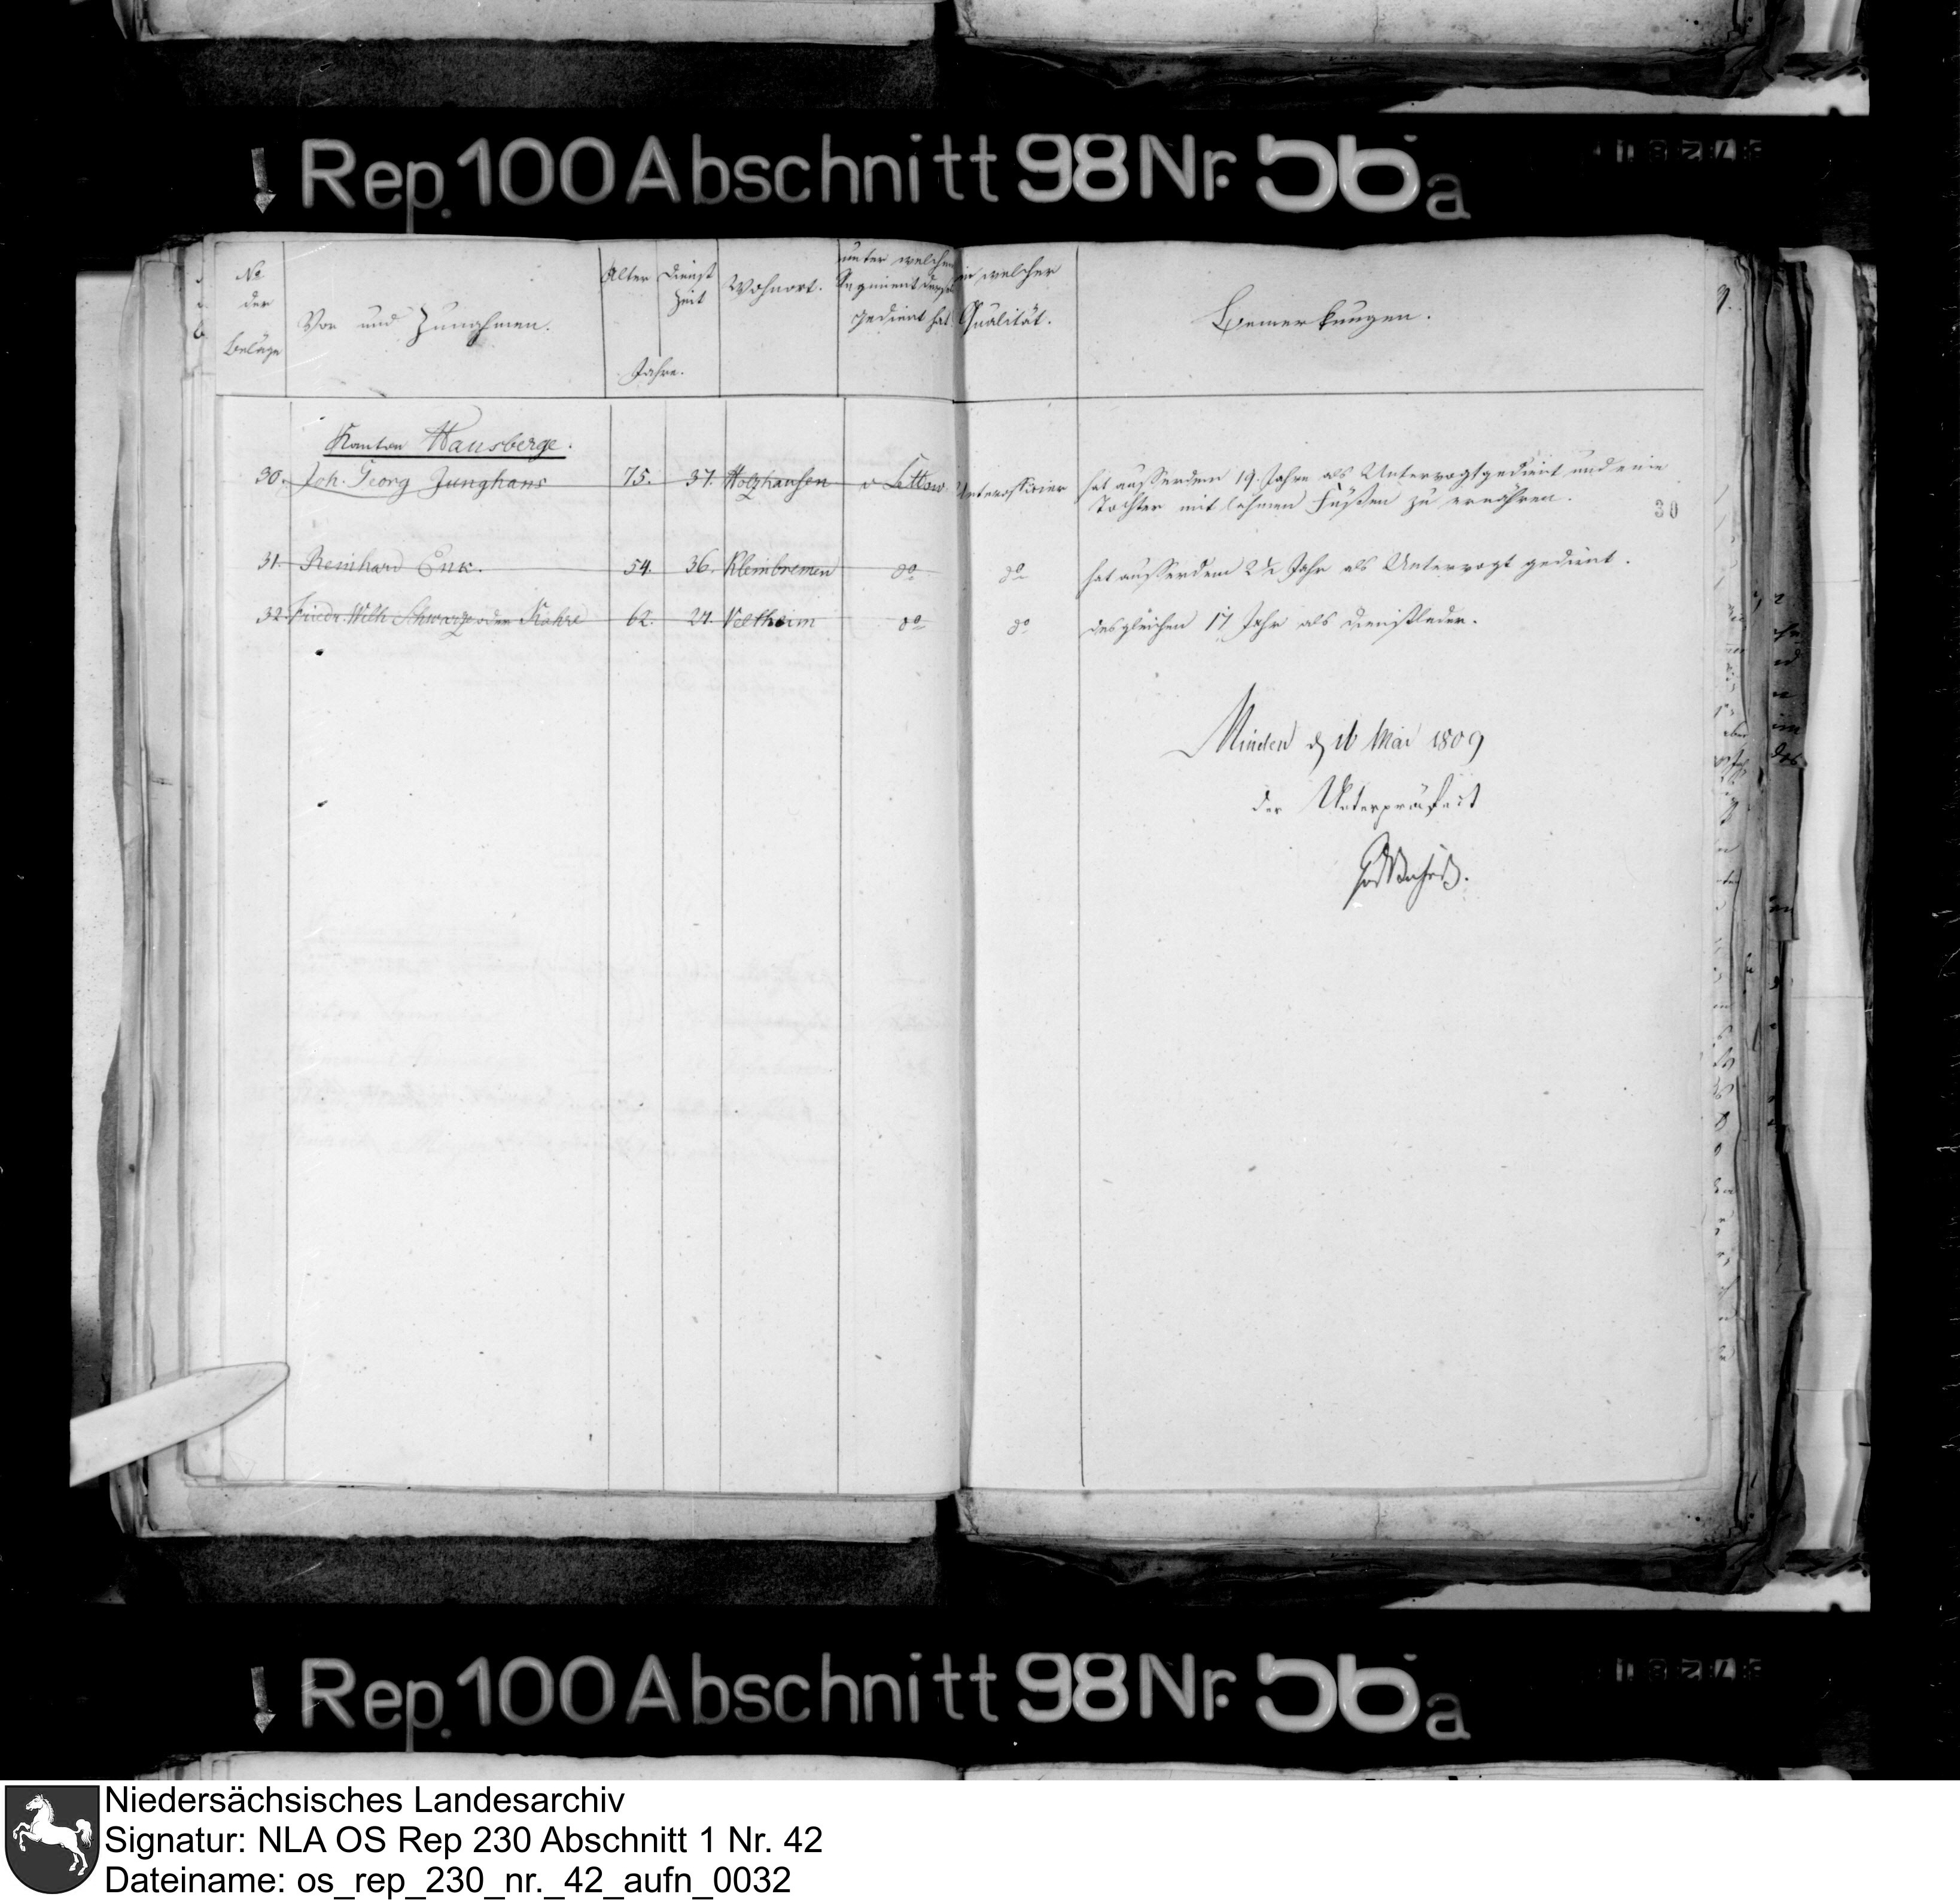 Rep. 100 Abschnitt 98 Nr. 56a
No der Beläge
Vor und Zunahmen.
Alter
Dienst Zeit
Jahre.
Wohnort.
unter welchem Regiment derselbe gedient hat
in welcher Qualität.
Bemerkungen.
9.
Kanton Hausberge.
30. Joh. Georg Junghans 75. 37. Holzhausen v Lettow Unterofficier hat ausserdem 19. Jahre als Untervogt gedient und eine
Tochter mit lahmen Füßen zu ernähren.
30
31. Reinhard Enk. 54. 36. Kleinbremen do do hat ausserdem 2½ Jahr als Untervogt gedient.
32. Friedr. Wilh. Schwarze oder Kohre 62. 27. Veltheim do do desgleichen 17 Jahr als
Minden d 16 Mai 1809
der Unterpräfect
Rep. 100 Abschnitt 98 Nr. 56a
Niedersächsisches Landesarchiv
Signatur: NLA OS Rep 230 Abschnitt 1 Nr. 42
Dateiname: os_rep_230_nr._42_aufn_0032